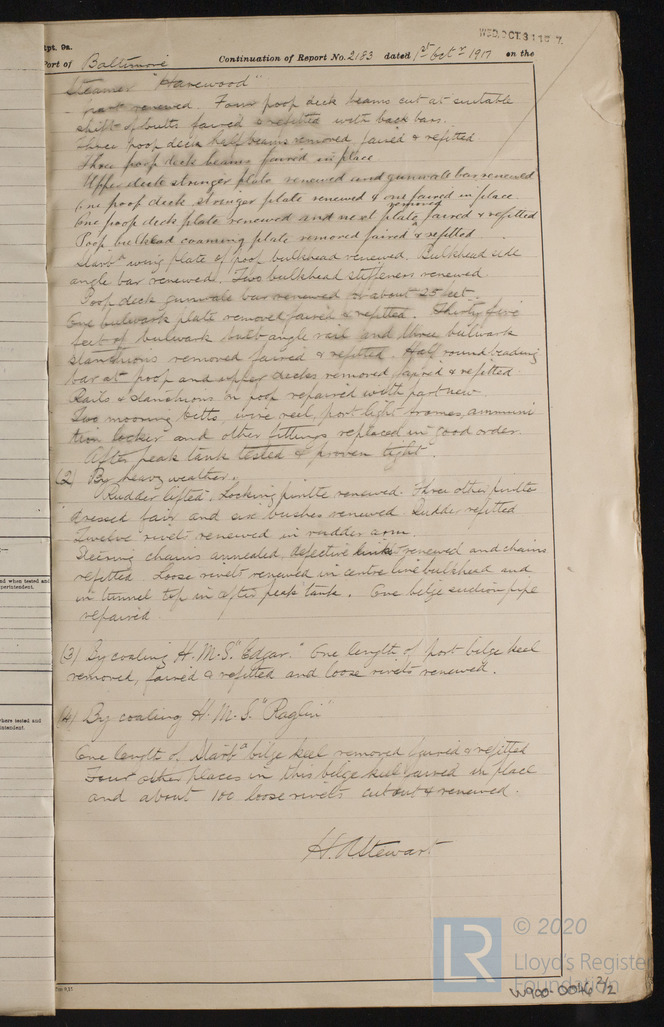 WED. OCT. 31 1917
Rpt. 9a.
Port of Baltimore Continuation of Report No. 2183 dated 1st Octr 1917 on the
Steamer "Harewood"
part renewed. Four poop deck beams cut at suitable
shift of butts faired & refitted with back bars.
Three poop deck half beams removed faired & refitted
Three poop deck beams faired in place
Upper deck stringer plate renewed and gunwale bar renewed
One poop deck stringer plate renewed & one faired in place
One poop deck plate renewed and next plate removed faired & refitted
Poop bulkhead coaming plate removed faired & refitted
Starbd wing plate of poop bulkhead renewed. Bulkhead side
angle bar renewed. Two bulkhead stiffeners renewed
Poop deck gunwale bar renewed for about 25 feet.
One bulwark plate removed faired & refitted. Thirty five
feet of bulwark bulb angle rail and three bulwark
stanchions removed faired & refitted. Half round beading
bar at poop and upper decks removed faired & refitted.
Rails & stanchions on poop repaired with part new.
Two mooring bitts, wire reel, port light frames, ammuni
tion locker and other fittings replaced in good order.
After peak tank tested & proven tight.
(2) By heavy weather.
Rudder lifted. Locking pintle renewed. Three other pintles
dressed fair and six bushes renewed Rudder refitted
Twelve rivets renewed in rudder arm.
Steering chains annealed, defective links renewed and chains
refitted. Loose rivets renewed in centre line bulkhead and
in tunnel top in after peak tank. One bilge suction pipe
repaired
(3) By coaling H.M.S. "Edgar." One length of port bilge keel
removed, faired & refitted and loose rivets renewed.
(4) By coaling H.M.S. "Raglin"
One length of Starbd bilge keel removed faired & refitted
Four other places in this bilge keel faired in place
and about 100 loose rivets cut out & renewed.
H. A. Stewart
nd when tested and
perintendent.
where tested and
intendent.
© 2020
LR
Lloyd's Register
Foundation
W900-0046 2/2